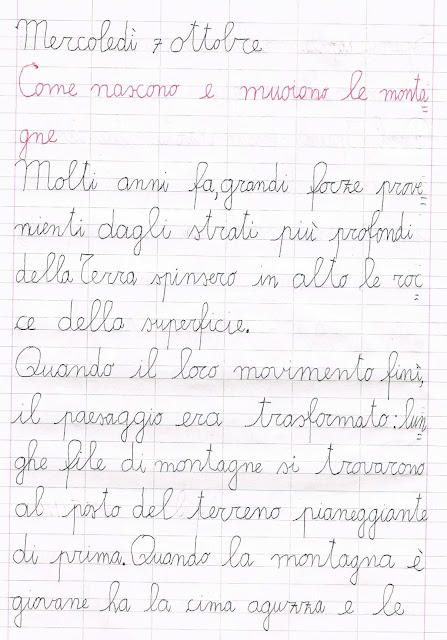 Mercoledì 7 ottobre
Come nascono e muoiono le monta=
gne
Molti anni fa, grandi forze prove=
nienti dagli strati più profondi
della Terra spinsero in alto le roc=
ce della superficie.
Quando il loro movimento finì,
il paesaggio era trasformato: lun=
ghe file di montagne si trovarono
al posto del terreno pianeggiante
di prima. Quando la montagna è
giovane ha la cima aguzza e le